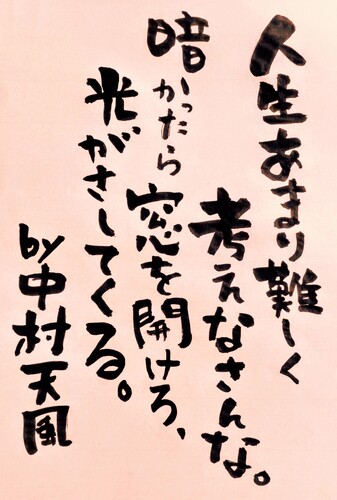 人生あまり難しく
考えなさんな。
暗かったら
窓を開けろ、
光がさしてくる。
by中村天風